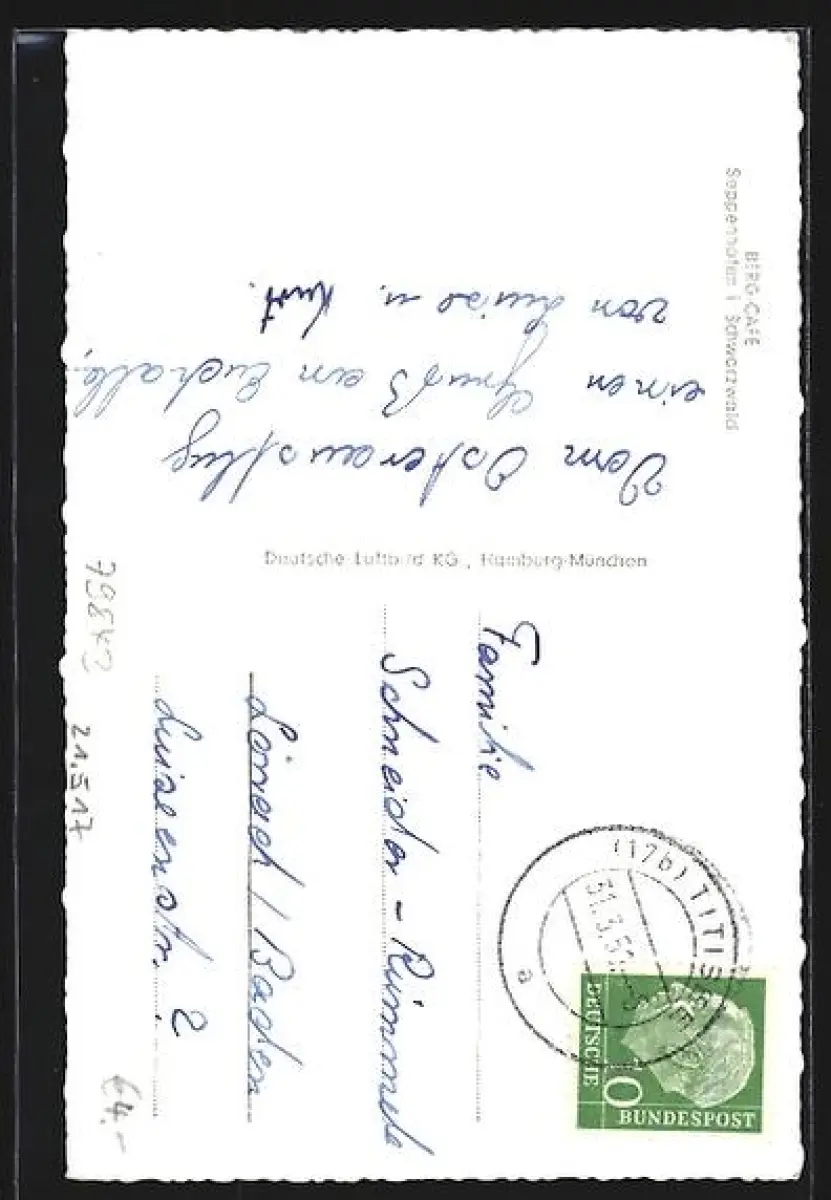 BERG-CAFE
Seppenhofen i. Schwarzwald
Vom Osterausflug
einen Gruß an Euch alle,
von Luise u. Kurt.
Deutsche Luftbild KG., Hamburg-München
Familie
Schneider - Rümmele
Lörrach / Baden
Luisenstr. 2
(17b) TITISEE
31.3.5
a
DEUTSCHE
BUNDESPOST
10
21.517
€4.-